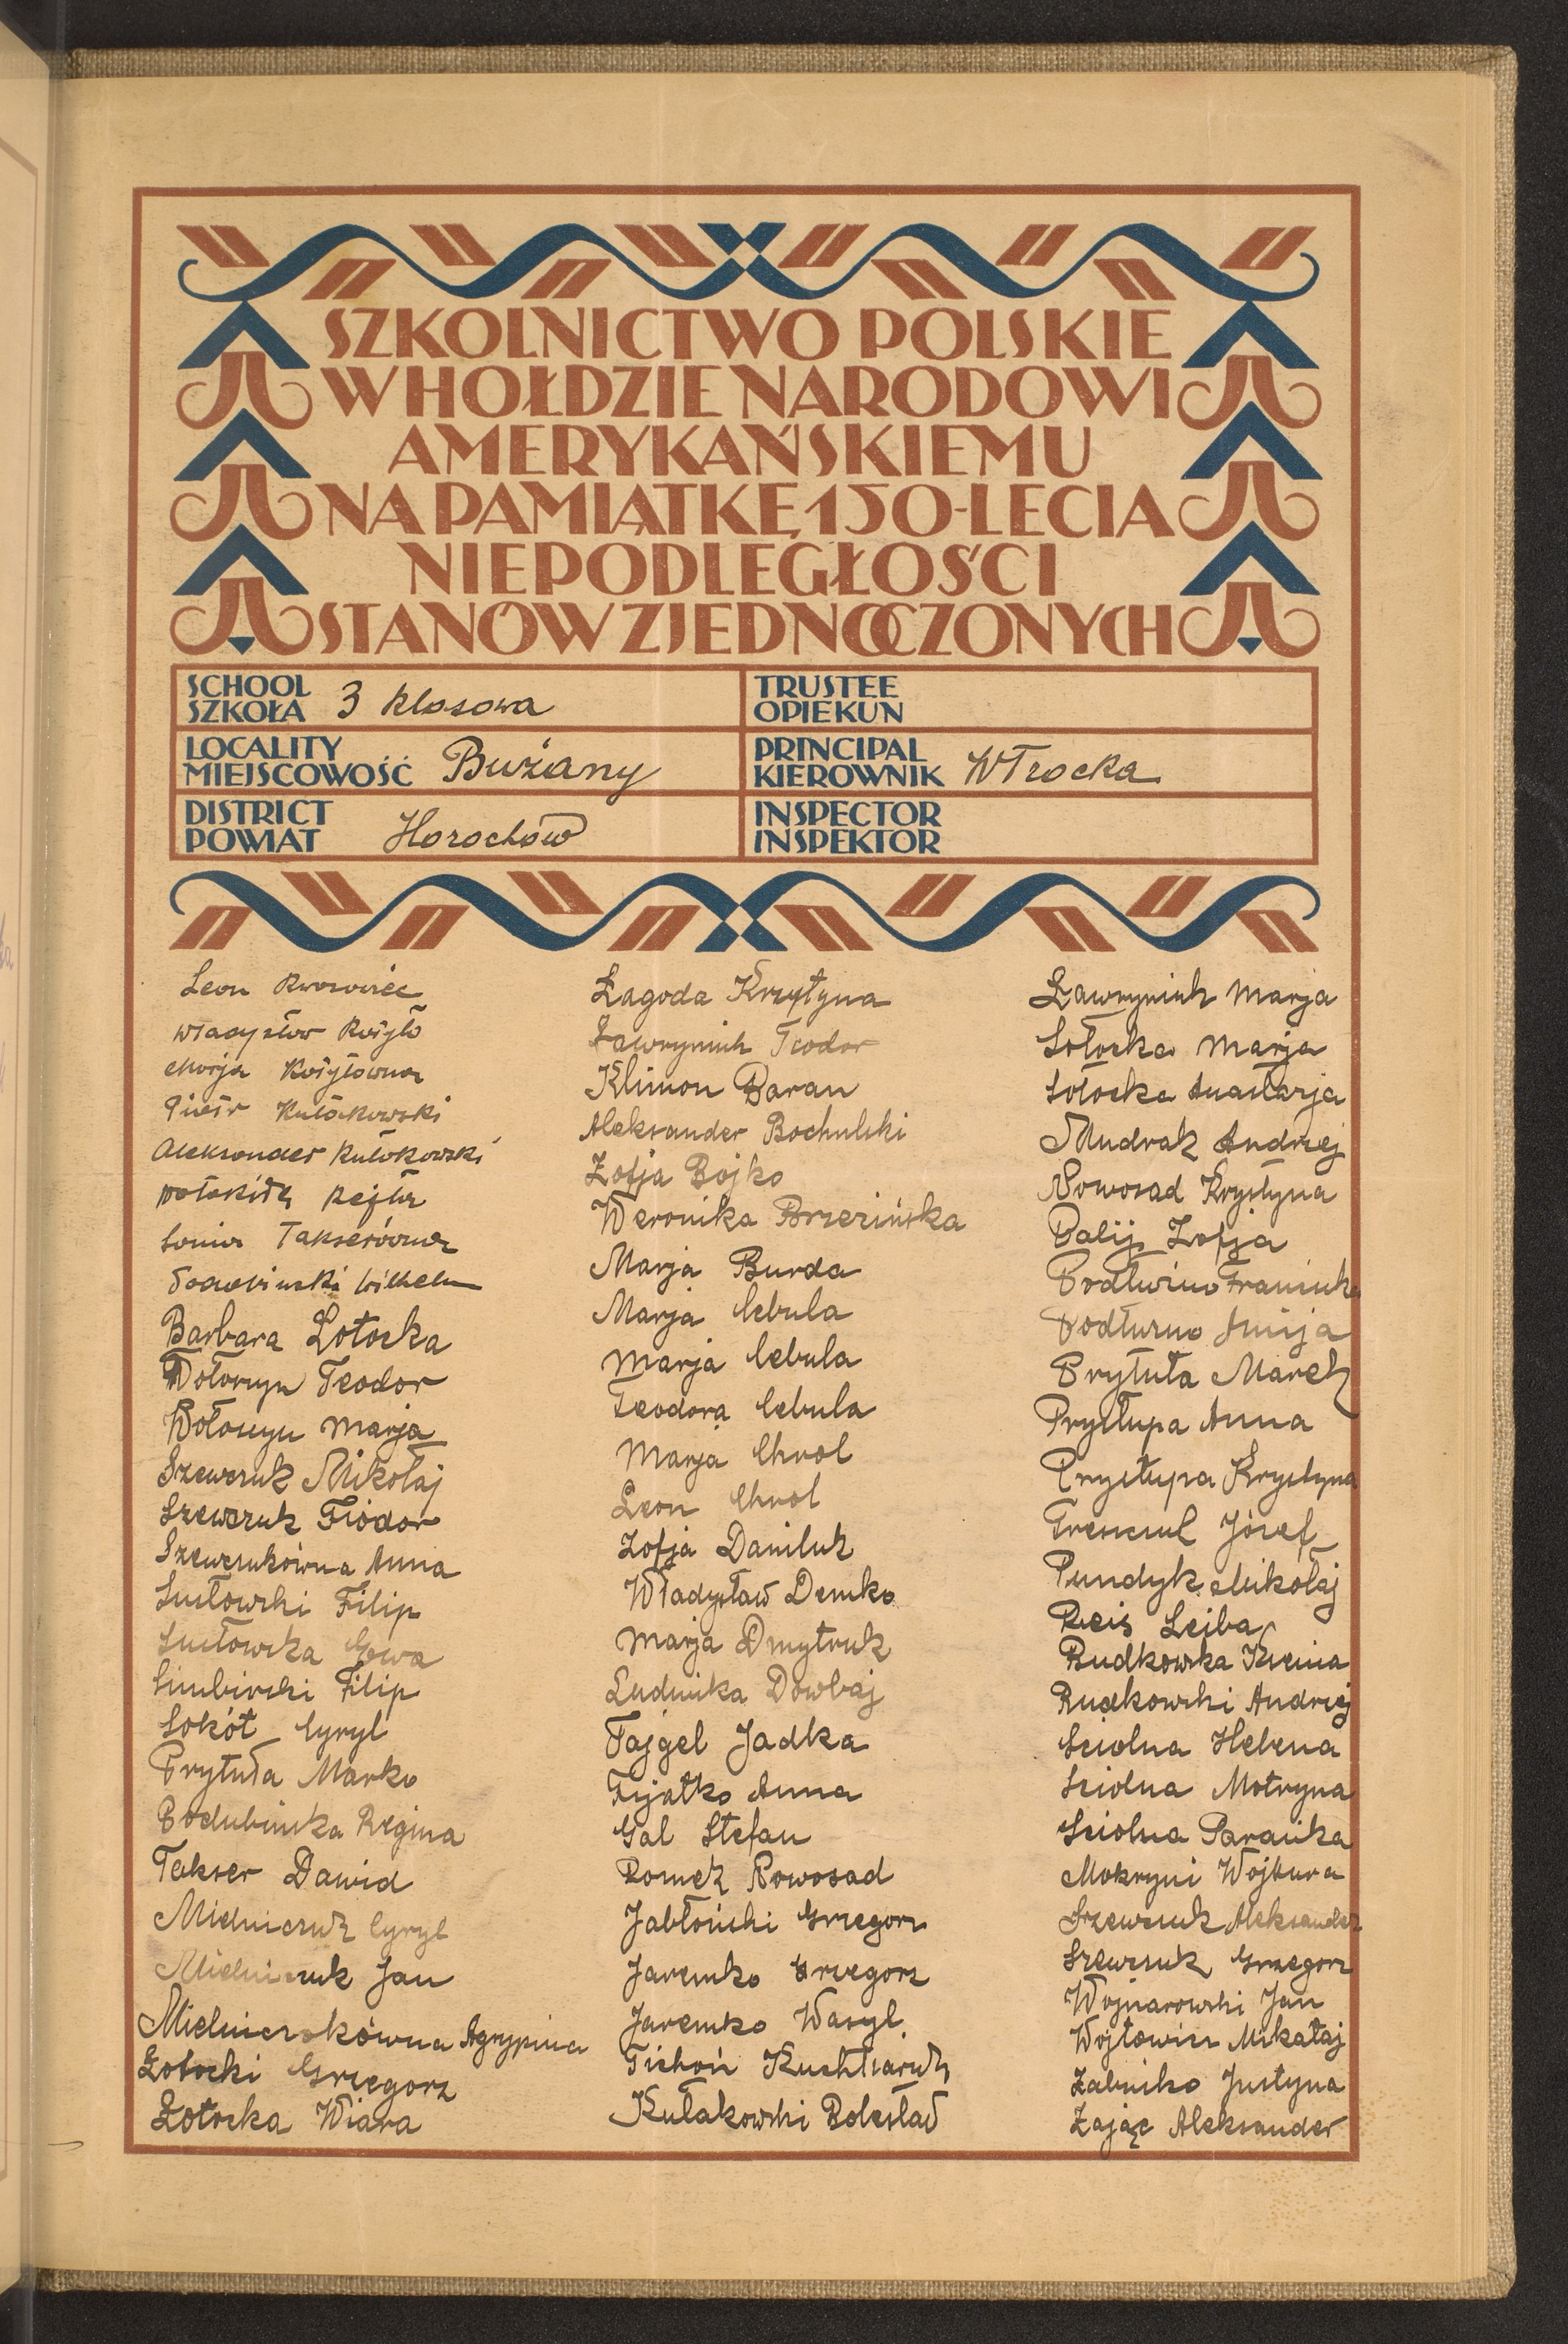 SZKOLNICTWO POLSKIE
W HOŁDZIE NARODOWI
AMERYKAŃSKIEMU
NA PAMIĄTKĘ 150-LECIA
NIEPODLEGŁOŚCI
STANÓW ZJEDNOCZONYCH
SCHOOL
SZKOŁA 3 klasowa
TRUSTEE
OPIEKUN
LOCALITY
MIEJSCOWOŚĆ Bużany
PRINCIPAL
KIEROWNIK WTrocka
DISTRICT
POWIAT Horochów
INSPECTOR
INSPEKTOR
Leon
Władysław Kożyło
Marja Kożyłówna
Piotr Kułakowski
Aleksander Kułakowski
Rejter
Sonia Takserówna
Wilhelm
Barbara Łotocka
Wołoszyn Teodor
Wołoszyn Marja
Szewczuk Mikołaj
Szewczuk Fiodor
Szewczukówna Anna
Susłowski Filip
Susłowska Ewa
Simbirski Filip
Sokół Cyryl
Prytuła Marko
Podubinska Regina
Takser Dawid
Mielniczuk Cyryl
Mielniczuk Jan
Mielniczukówna Agrypina
Łotocki Grzegorz
Łotocka Wiara
Łagoda Krzystyna
Ławryniuk Teodor
Klimon Baran
Aleksander Bochulski
Zofja Bojko
Weronika Brzezińska
Marja Burda
Marja Cebula
Marja Cebula
Teodora Cebula
Marja Chrol
Leon Chrol
Zofja Daniluk
Władysław Demko
Marja Dmytruk
Ludwika Dowbaj
Fajgel Jadka
Fijałko Anna
Gal Stefan
Romek Nowosad
Jabłoński Grzegorz
Jaremko Grzegorz
Jaremko Wasyl
Tichoń
Kułakowski Bolesław
Ławryniuk Marja
Łotocka Marja
Łotocka Anastazja
Mudrak Andrzej
Nowosad Krystyna
Palij Zofja
Franciszk
Prytuła Marek
Prystupa Anna
Prystupa Krystyna
Józef
Pundyk Mikołaj
Reis Lejba
Rudkowska Ksenia
Rudkowski Andrzej
Sciolna Helena
Sciolna Motryna
Sciolna Paraśka
Mokryni Wojtura
Szewczuk Aleksander
Szewczuk Grzegorz
Wojnarowski Jan
Wójtowicz Mikałaj
Justyna
Zając Aleksander